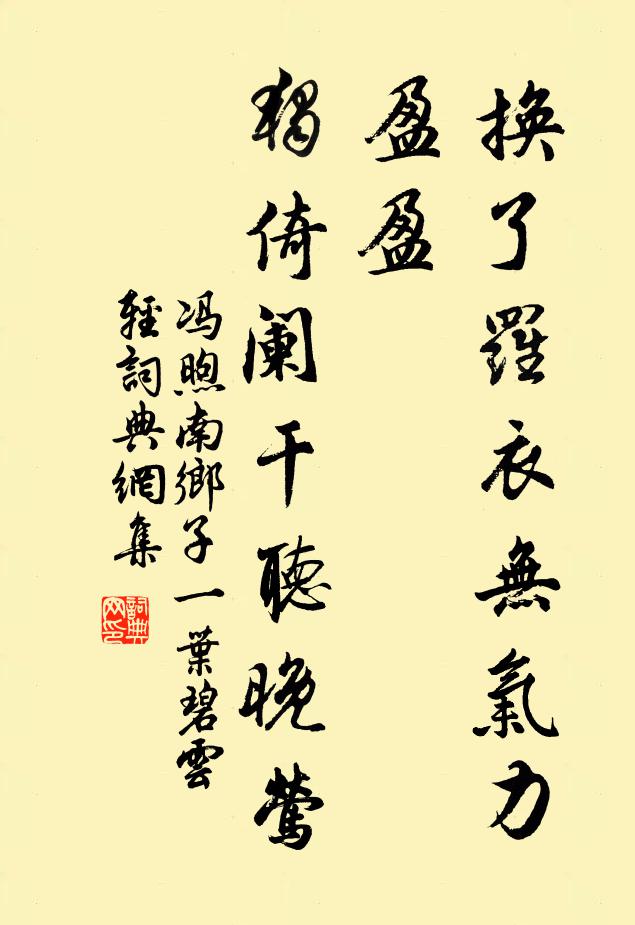 換了羅衣無氣力
盈盈
獨倚闌干聽晚鶯
冯煦南鄉子一葉碧雲
輕詞典網集
詞典
网印